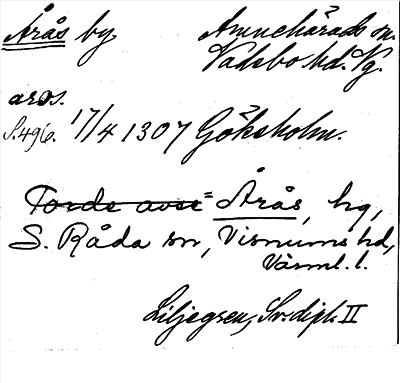 Årås by Amnehärads sn.
Vadsbo hd. Vg.
aros.
S.496. 17/4 1307 Göksholm.
Torde avse = Årås, hg,
S. Råda sn, Visnums hd,
Värml. l.
Liljegren, Sv. dipl. II